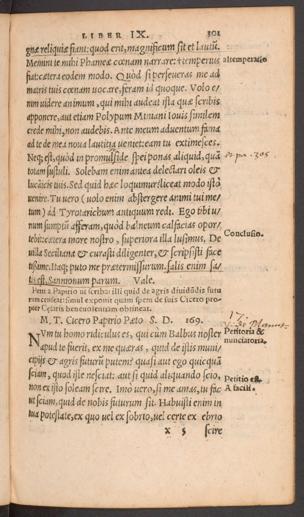 LIBER IX. 301
gnæ reliquiæ fiant: quod erit, magnificum sit et lautū.
Memini te mihi Phameæ cœnam narrare: temperius
fiat: cætera eodem modo. Quòd si perseueras me ad
matris tuis cœnam uocare, feram id quoque. Volo e-
nim uidere animum, qui mihi audeat ista quæ scribis
apponere, aut etiam Polypum Miniani Iouis similem
crede mihi, non audebis. Ante meum aduentum fama
ad te de mea noua lautitia ueniet: eam tu extimesces.
Neq; est, quòd in promulside spei ponas aliquid, quā
totam sustuli. Solebam enim antea delectari oleis &
lucanicis tuis. Sed quid hæc loquimur: liceat modo istò
uenire. Tu uero (uolo enim abstergere animi tui me-
tum) ad Tyrotarichum antiquum redi. Ego tibi u-
num sumptū afferam, quòd balneum calfacias opor-
tebit: cætera more nostro, superiora illa lusimus. De
uilla Seciliana & curasti diligenter, & scripsisti face
tißime. Itaq; puto me prætermissurum. salis enim sa-
tis est, Sannonum parum. Vale.
M. T. Cicero Papirio Pæto S. D. 169.
NVm tu homo ridiculus es, qui cùm Balbus noster
apud te fuerit, ex me quæras, quid de istis muni-
cipijs & agris futurū putem? quasi aut ego quicquā
sciam, quod iste nesciat: aut si quid aliquando scio,
non ex isto soleam scire. Imo uerò, si me amas, tu fac
ut sciam, quid de nobis futurum sit. Habuisti enim in
tua potestate, ex quo uel ex sobrio, uel certe ex ebrio
x 5 scire
altemperatio
Conclusio.
Petitoria &
nunciatoria.
Petitio est
A facili.